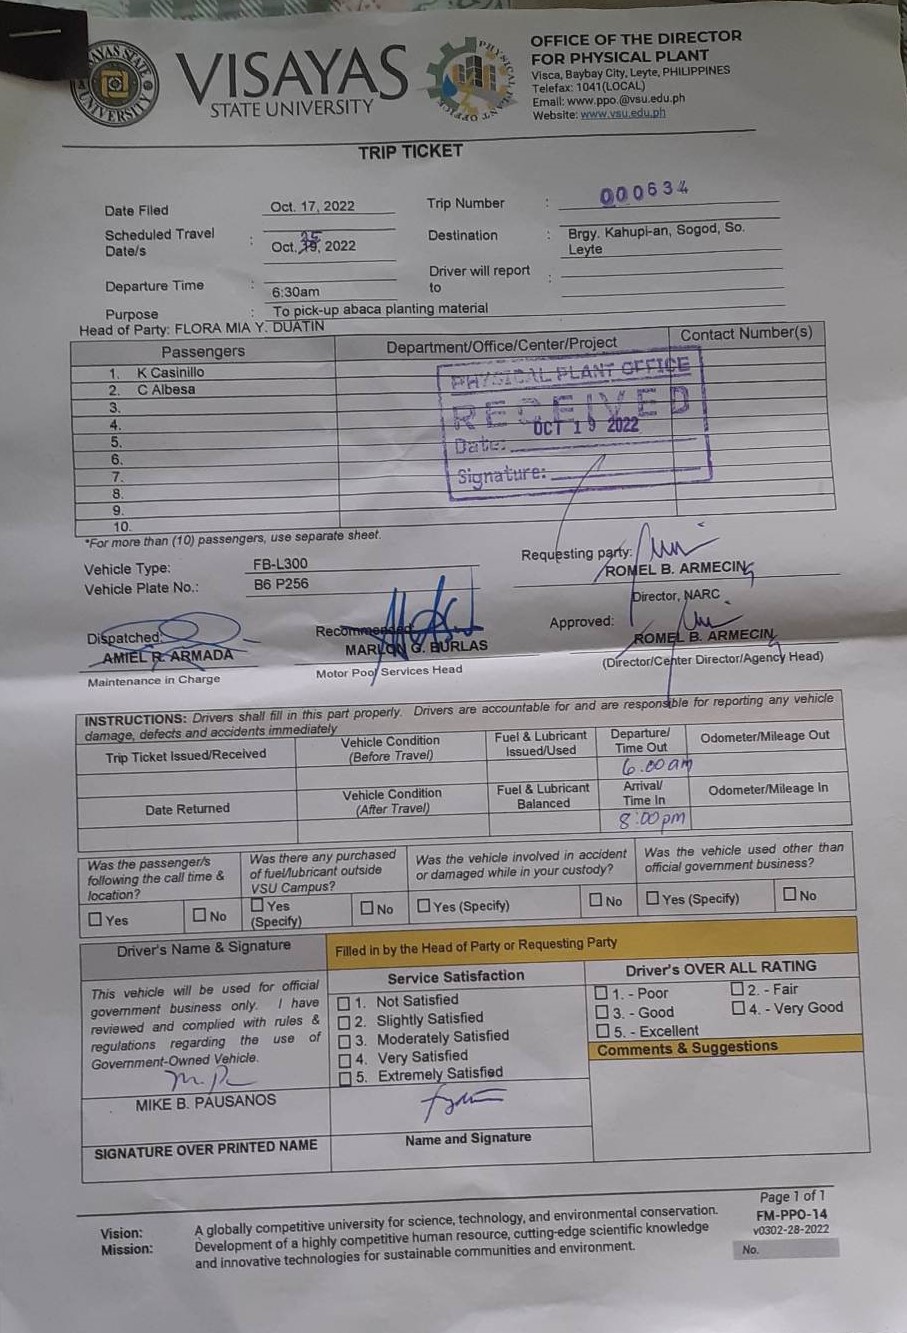 VISAYAS
STATE UNIVERSITY
OFFICE OF THE DIRECTOR
FOR PHYSICAL PLANT
Visca, Baybay City, Leyte, PHILIPPINES
Telefax: 1041(LOCAL)
Email: www.ppo.@vsu.edu.ph
Website: www.vsu.edu.ph
TRIP TICKET
Date Filed Oct. 17, 2022 Trip Number : 000634
Scheduled Travel Date/s : Oct. 25, 2022 Destination : Brgy. Kahupi-an, Sogod, So. Leyte
Departure Time : 6:30am Driver will report to :
Purpose : To pick-up abaca planting material
Head of Party: FLORA MIA Y. DUATIN
Passengers Department/Office/Center/Project Contact Number(s)
1. K Casinillo
2. C Albesa
3.
4.
5.
6.
7.
8.
9.
10.
PHYSICAL PLANT OFFICE
RECEIVED
Date: OCT 19 2022
Signature:
*For more than (10) passengers, use separate sheet.
Vehicle Type: FB-L300
Vehicle Plate No.: B6 P256
Requesting party:
ROMEL B. ARMECIN
Director, NARC
Dispatched:
AMIEL R. ARMADA
Maintenance in Charge
Recommended
MARLON G. BURLAS
Motor Pool Services Head
Approved:
ROMEL B. ARMECIN
(Director/Center Director/Agency Head)
INSTRUCTIONS: Drivers shall fill in this part properly. Drivers are accountable for and are responsible for reporting any vehicle
damage, defects and accidents immediately
Trip Ticket Issued/Received Vehicle Condition (Before Travel) Fuel & Lubricant Issued/Used Departure/ Time Out Odometer/Mileage Out
6:00am
Date Returned Vehicle Condition (After Travel) Fuel & Lubricant Balanced Arrival/ Time In Odometer/Mileage In
8:00pm
Was the passenger/s following the call time & location? Was there any purchased of fuel/lubricant outside VSU Campus? Was the vehicle involved in accident or damaged while in your custody? Was the vehicle used other than official government business?
Yes No Yes (Specify) No Yes (Specify) No Yes (Specify) No
Driver's Name & Signature
Filled in by the Head of Party or Requesting Party
This vehicle will be used for official
government business only. I have
reviewed and complied with rules &
regulations regarding the use of
Government-Owned Vehicle.
MIKE B. PAUSANOS
SIGNATURE OVER PRINTED NAME
Service Satisfaction
1. Not Satisfied
2. Slightly Satisfied
3. Moderately Satisfied
4. Very Satisfied
5. Extremely Satisfied
Name and Signature
Driver's OVER ALL RATING
1. - Poor 2. - Fair
3. - Good 4. - Very Good
5. - Excellent
Comments & Suggestions
Vision: A globally competitive university for science, technology, and environmental conservation.
Mission: Development of a highly competitive human resource, cutting-edge scientific knowledge
and innovative technologies for sustainable communities and environment.
Page 1 of 1
FM-PPO-14
v0302-28-2022
No.